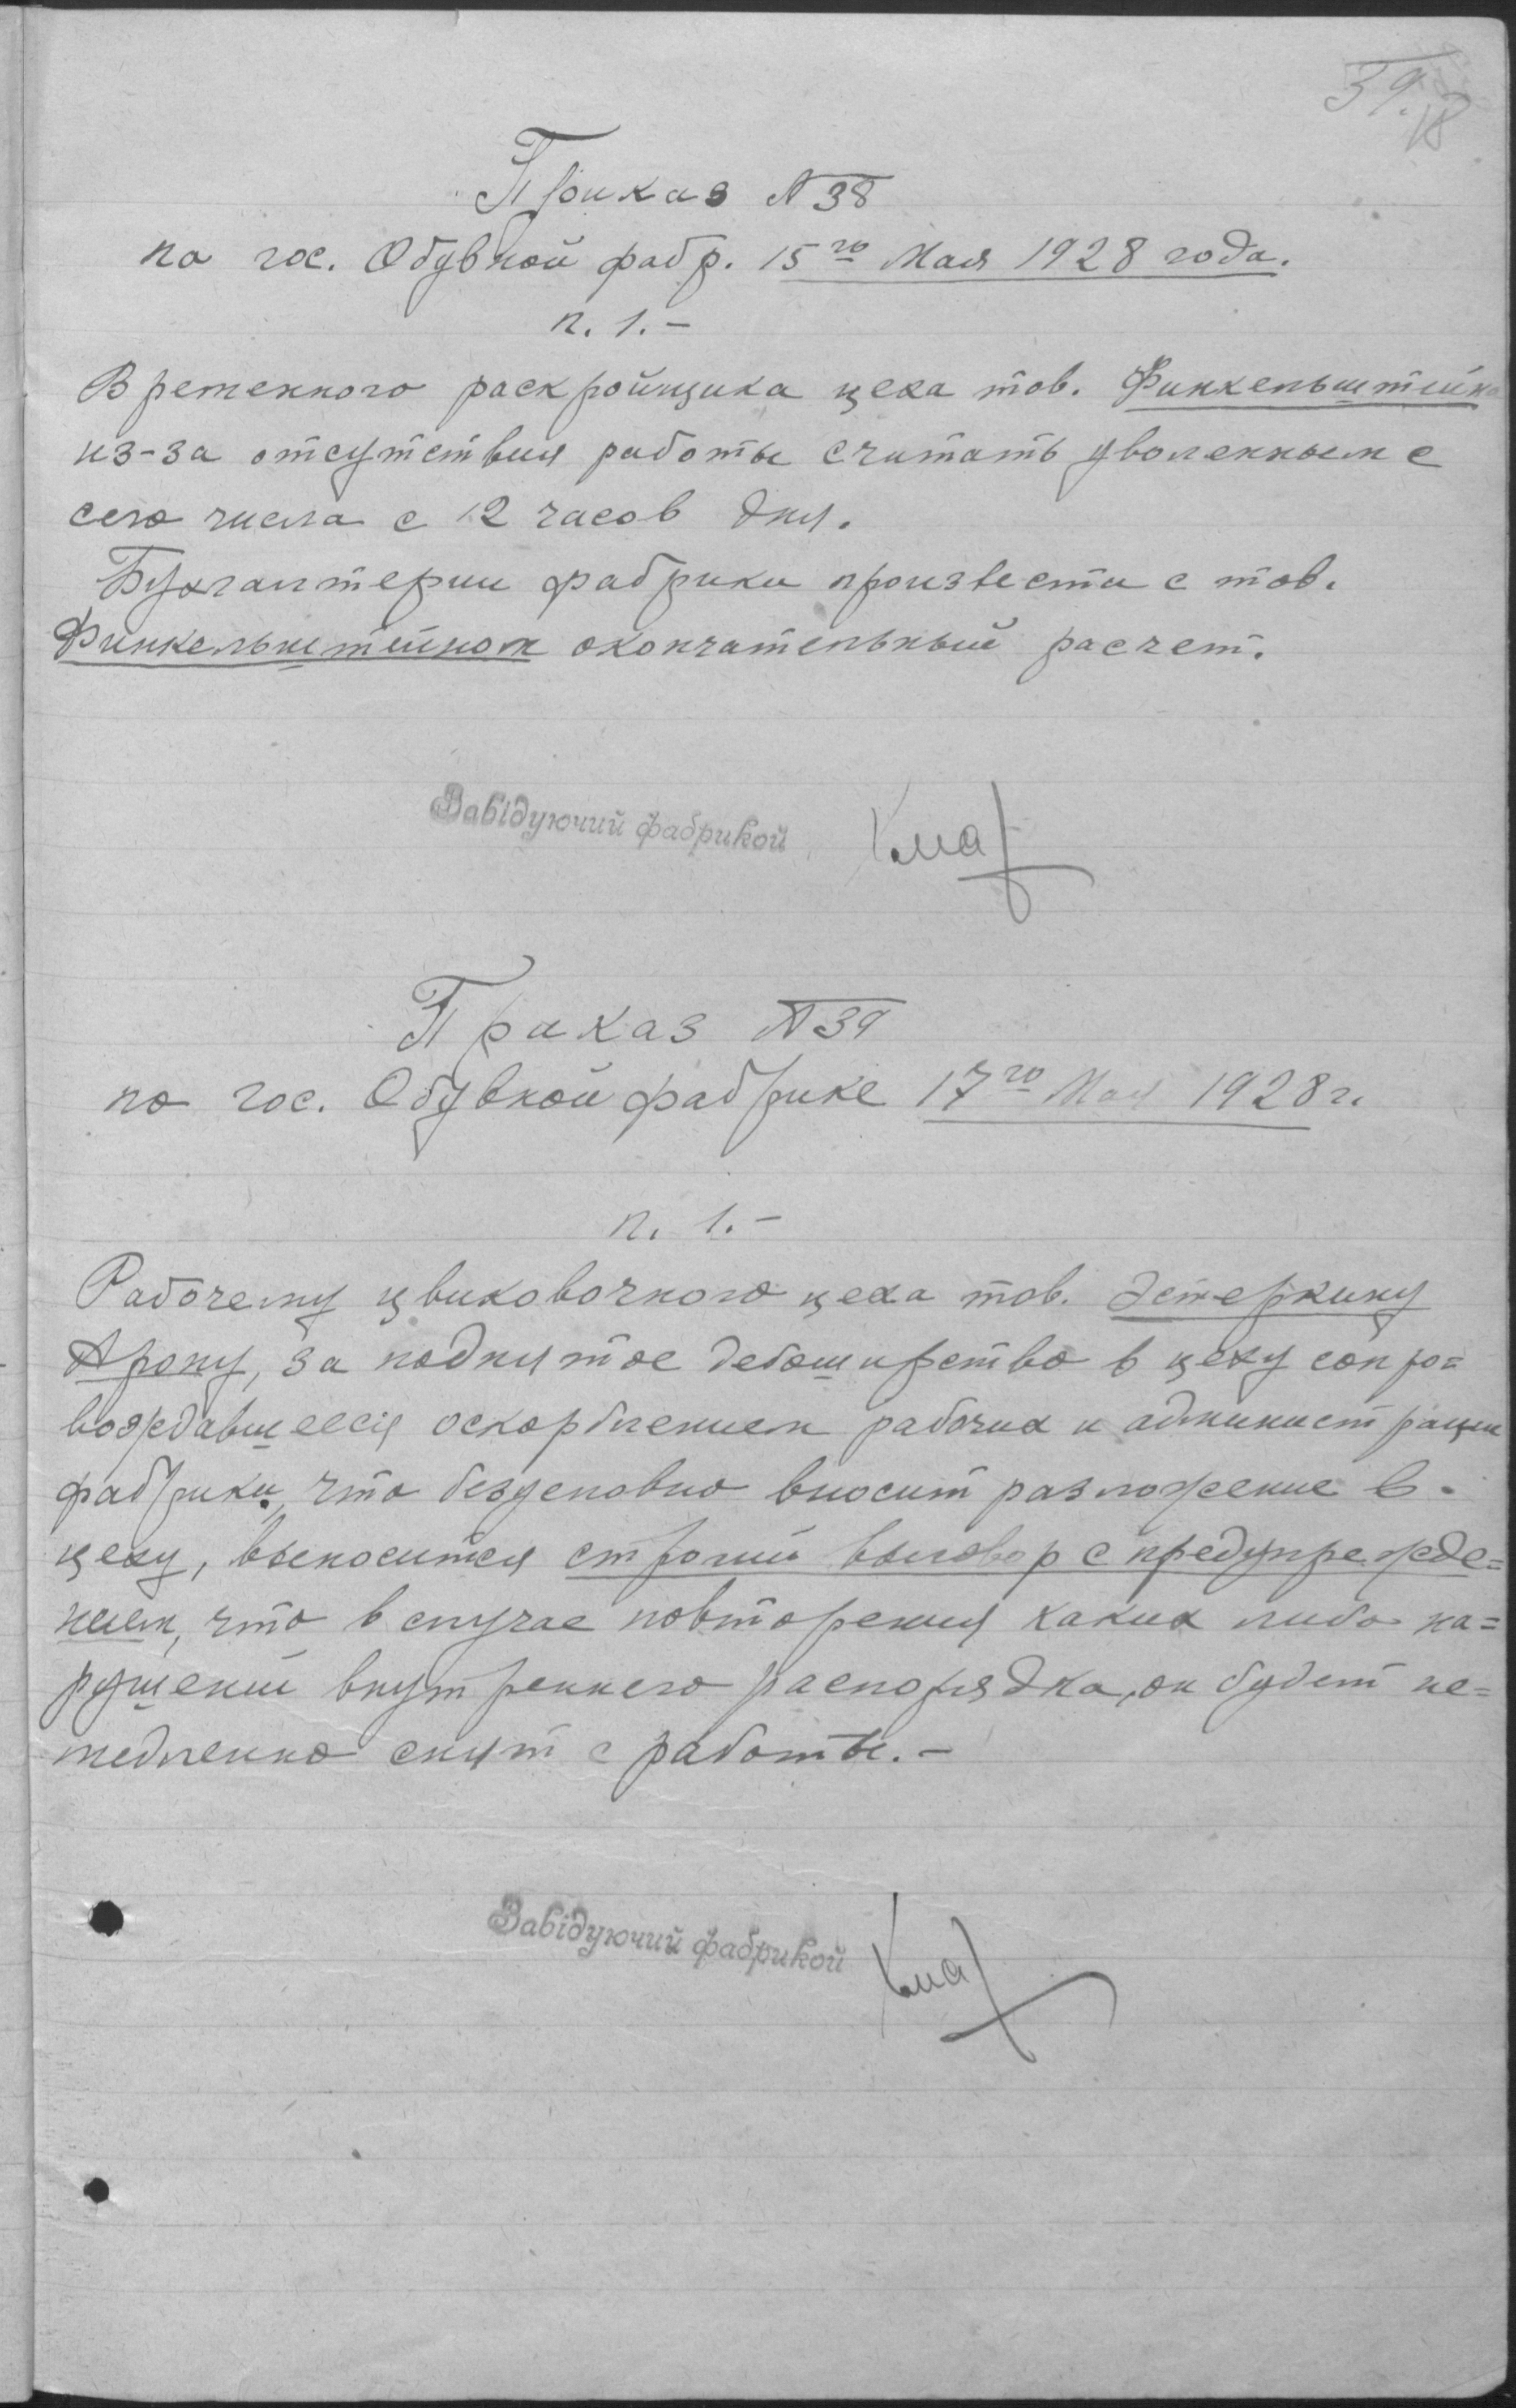 39.
18
Приказ № 38
по гос. Обувной фабр. 15го Мая 1928 года.
п. 1.-
Временного раскройщика цеха тов. Финкельштейна
из-за отсутствия работы считать уволенным с
сего числа с 12 часов дня.
Бухгалтерии фабрики произвести с тов.
Финкельштейном окончательный расчет.
Завідуючий фабрикой
Приказ № 39
по гос. Обувной фабрике 17го Мая 1928 г.
п. 1.-
Рабочему цвиковочного цеха тов. Эстеркину
Арону, за поднятое дебоширство в цеху сопро=
вождавшееся оскорблением рабочих и администрации
фабрики, что безусловно вносит разложение в
цеху, выносится строгий выговор с предупрежде=
нием, что в случае повторения каких либо на=
рушений внутреннего распорядка, он будет не=
медленно снят с работы.-
Завідуючий фабрикой